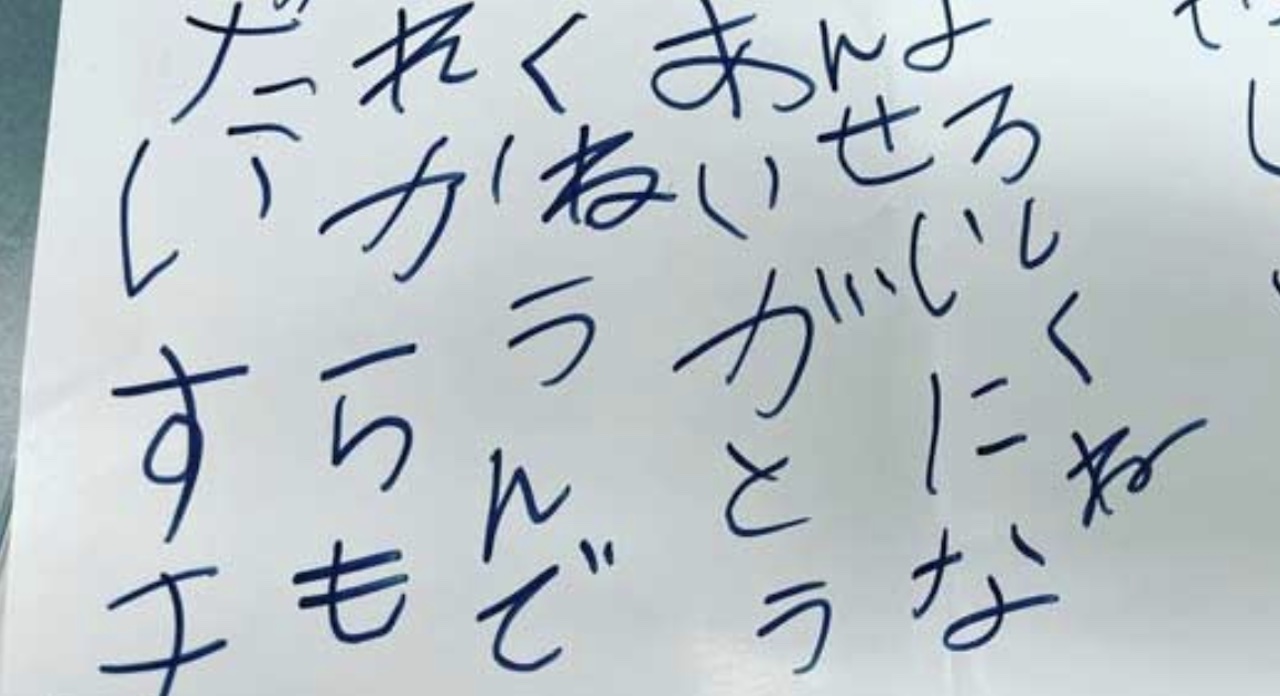 よろしくね
んせいにな
あいがとう
くねうんで
れからも
だいすき